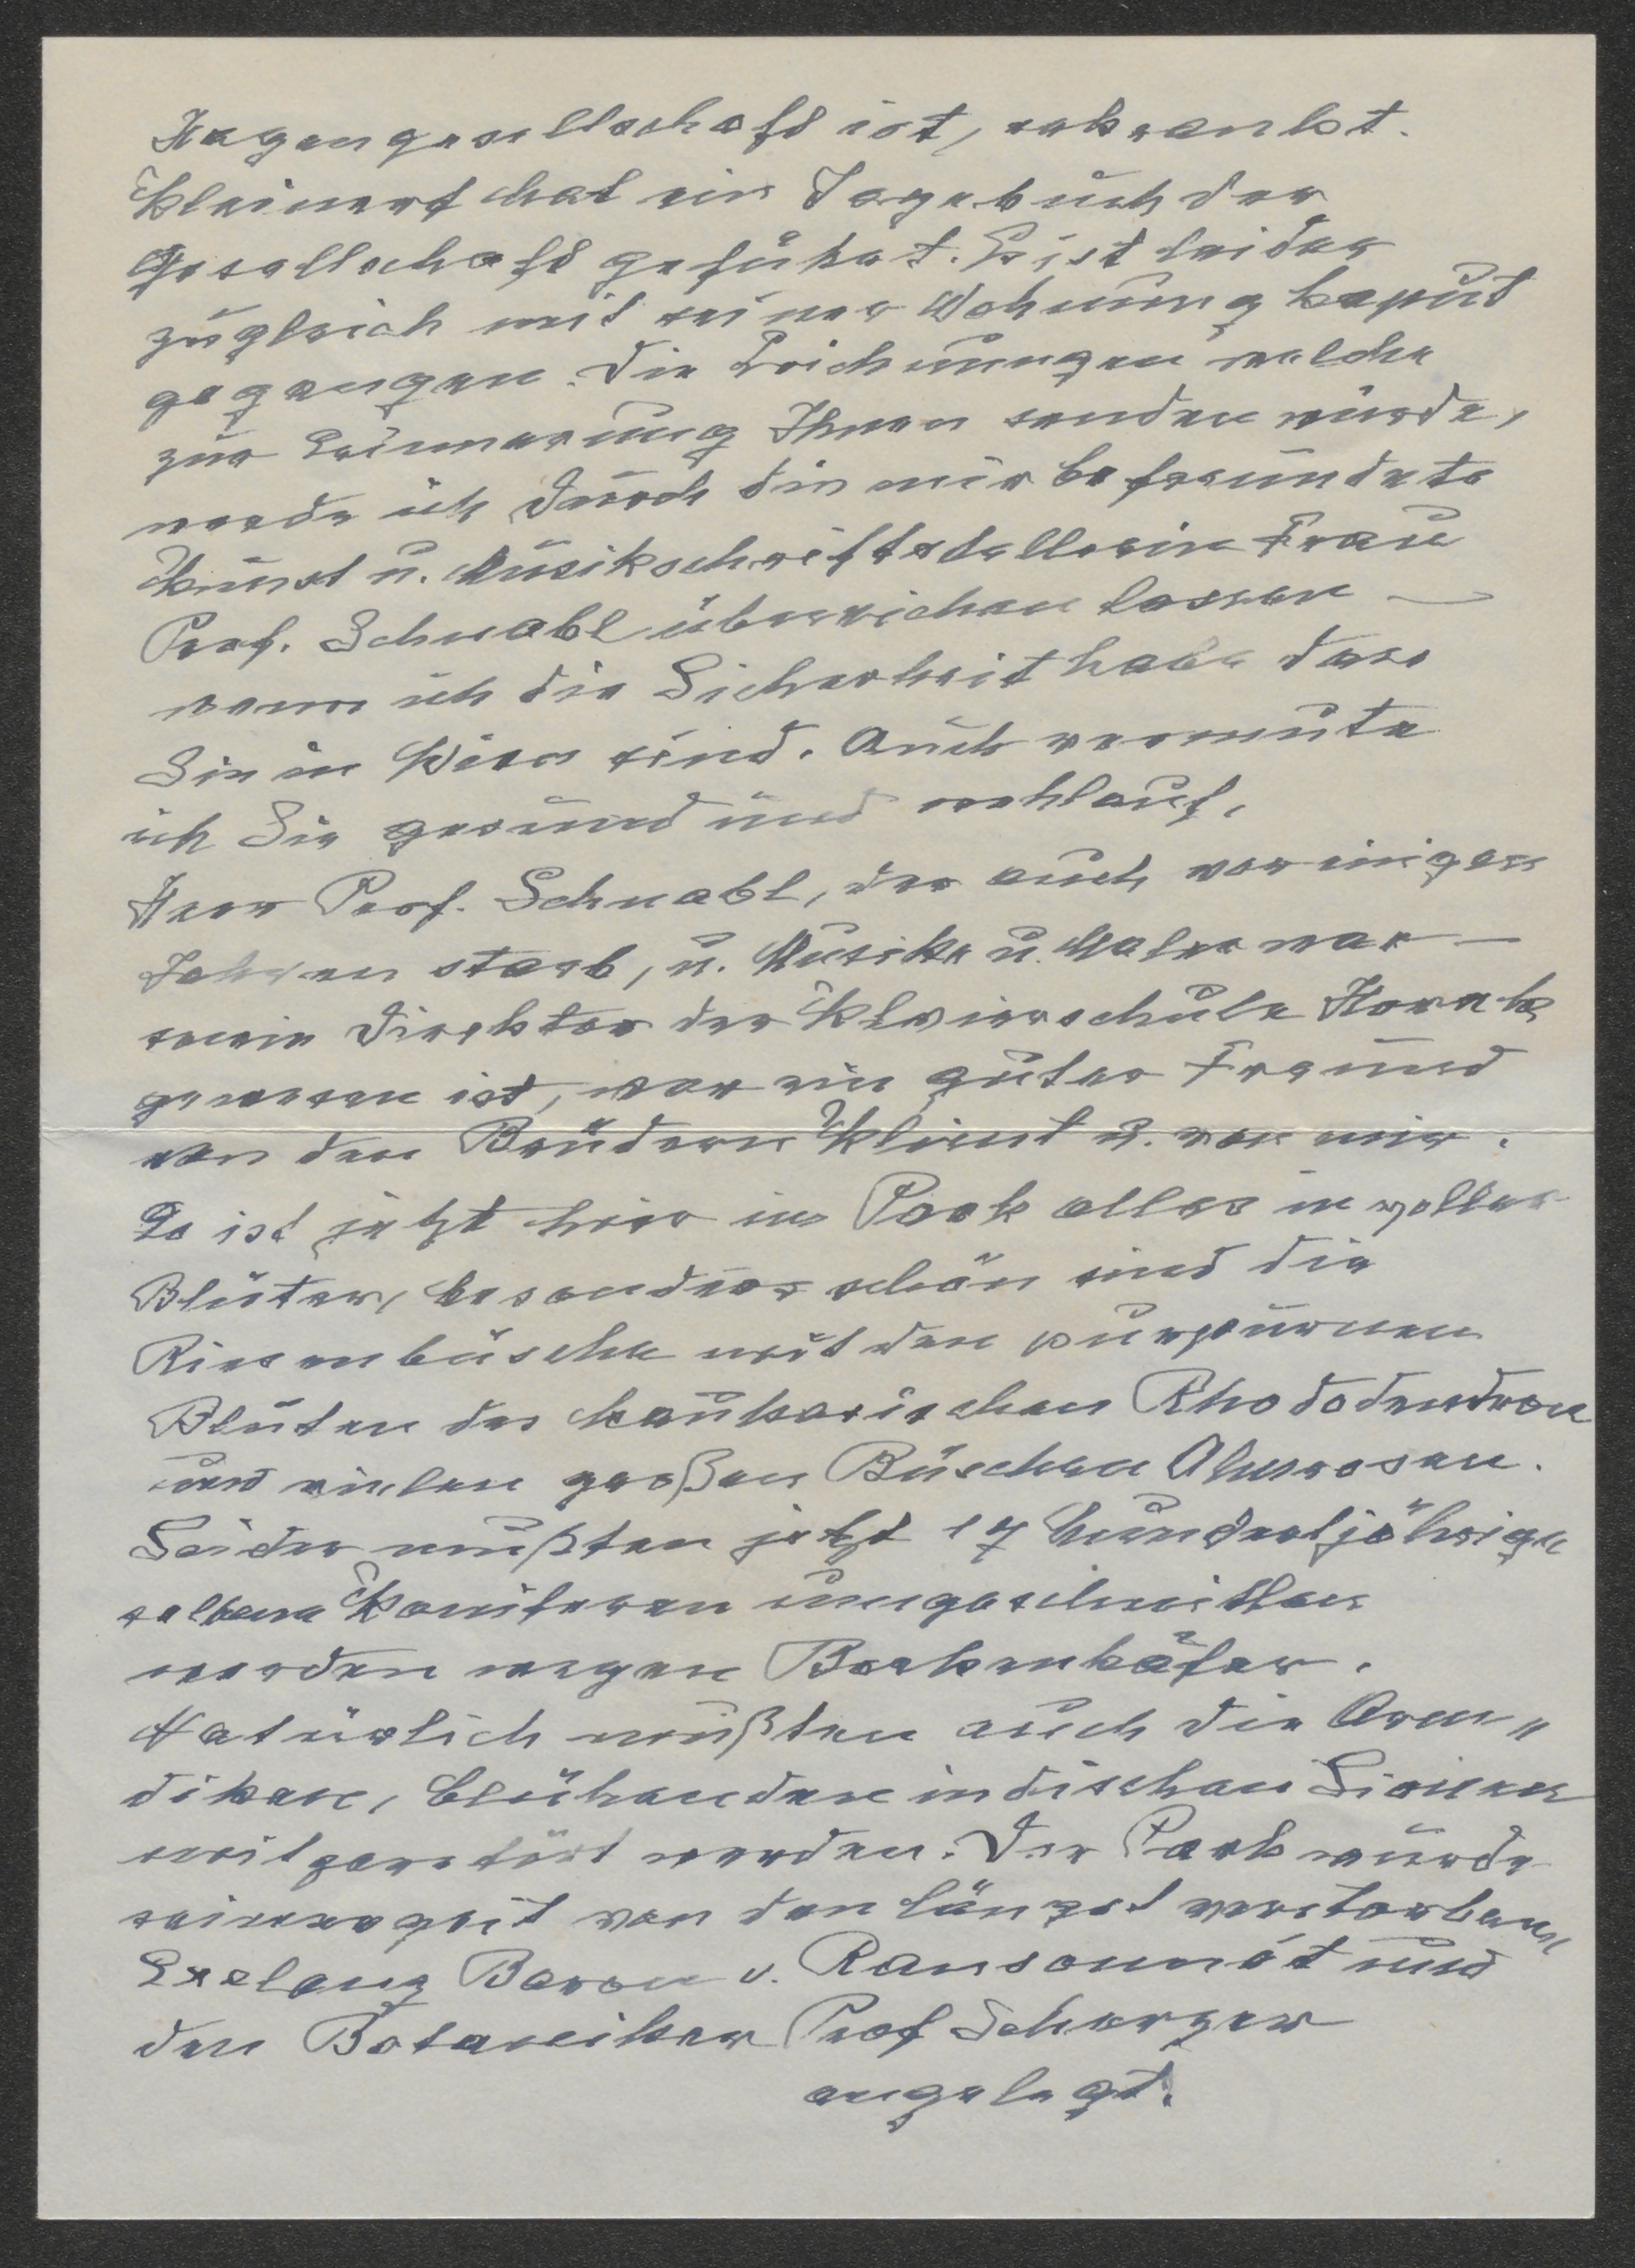 Hagengesellschaft ist, erkrankt.
Kleinert hat ein Tagebuch der
Gesellschaft geführt. Es ist leider
zugleich mit seiner Wohnung kaputt
gegangen. Die Zeichnungen welche
zur Erinnerung Ihnen senden würde,
werde ich durch die mir befreundete
Kunst u. Musikschriftstellerin Frau
Prof. Schnabl überreichen lassen —
wenn ich die Sicherheit habe dass
Sie in Wien sind. Auch vermute
ich Sie gesund und wohlauf.
Herr Prof. Schnabl, der auch vor einigen
Jahren starb, u. Musiker u. Maler war —
sowie Direktor der Klavierschule Horak
gewesen ist, war ein guter Freund
von den Brüdern Klimt u. von mir.
Es ist jetzt hier im Park alles in voller
Blüten, besonders schön sind die
Riesenbüsche mit den purpurnen
Blüten des kaukasischen Rhododendron
und vielen großen Büschen Almrosen.
Leider mußten jetzt 17 hundertjährige
seltene Koniferen umgeschnitten
werden wegen Borkenkäfer.
Natürlich mußten auch die Orm„
diken, blühenden indischen Lianen
mitzerstört werden. Der Park wurde
seinerzeit von den längst verstorbenen
Exelenz Baron v. Ransonnét und
den Botaniker Prof Scharger
angelegt.